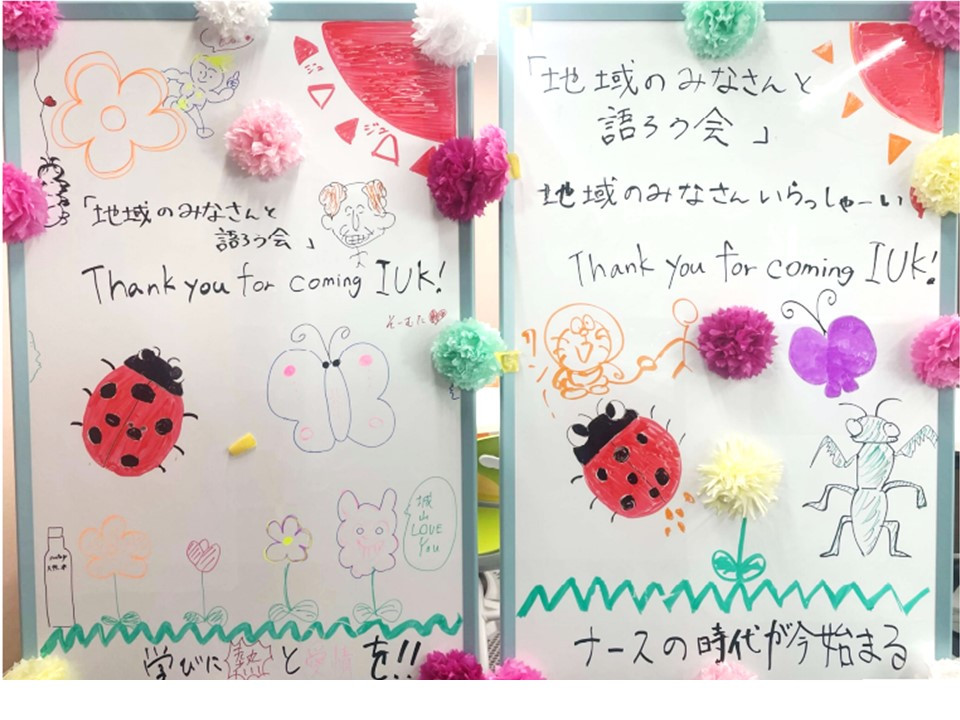 ジュ
ジュ
「地域のみなさんと
語ろう会」
Thank you for coming IUK!
そーむた
城
山
LOVE
You
学びに熱と を!!
「地域のみなさんと
語ろう会」
地域のみなさんいらっしゃーい
Thank you for coming IUK!
ナースの時代が今始まる